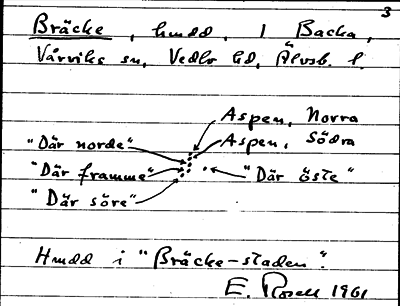 3
Bräcke, hmdd. 1 Backa,
Vårviks sn, Vedbo hd, Älvsb. l.
Aspen, Norra
Aspen, Södra
"Där norde"
"Där framme"
"Där öste"
"Där söre"
Hmdd i "Bräcke-staden".
E. Rosell 1961